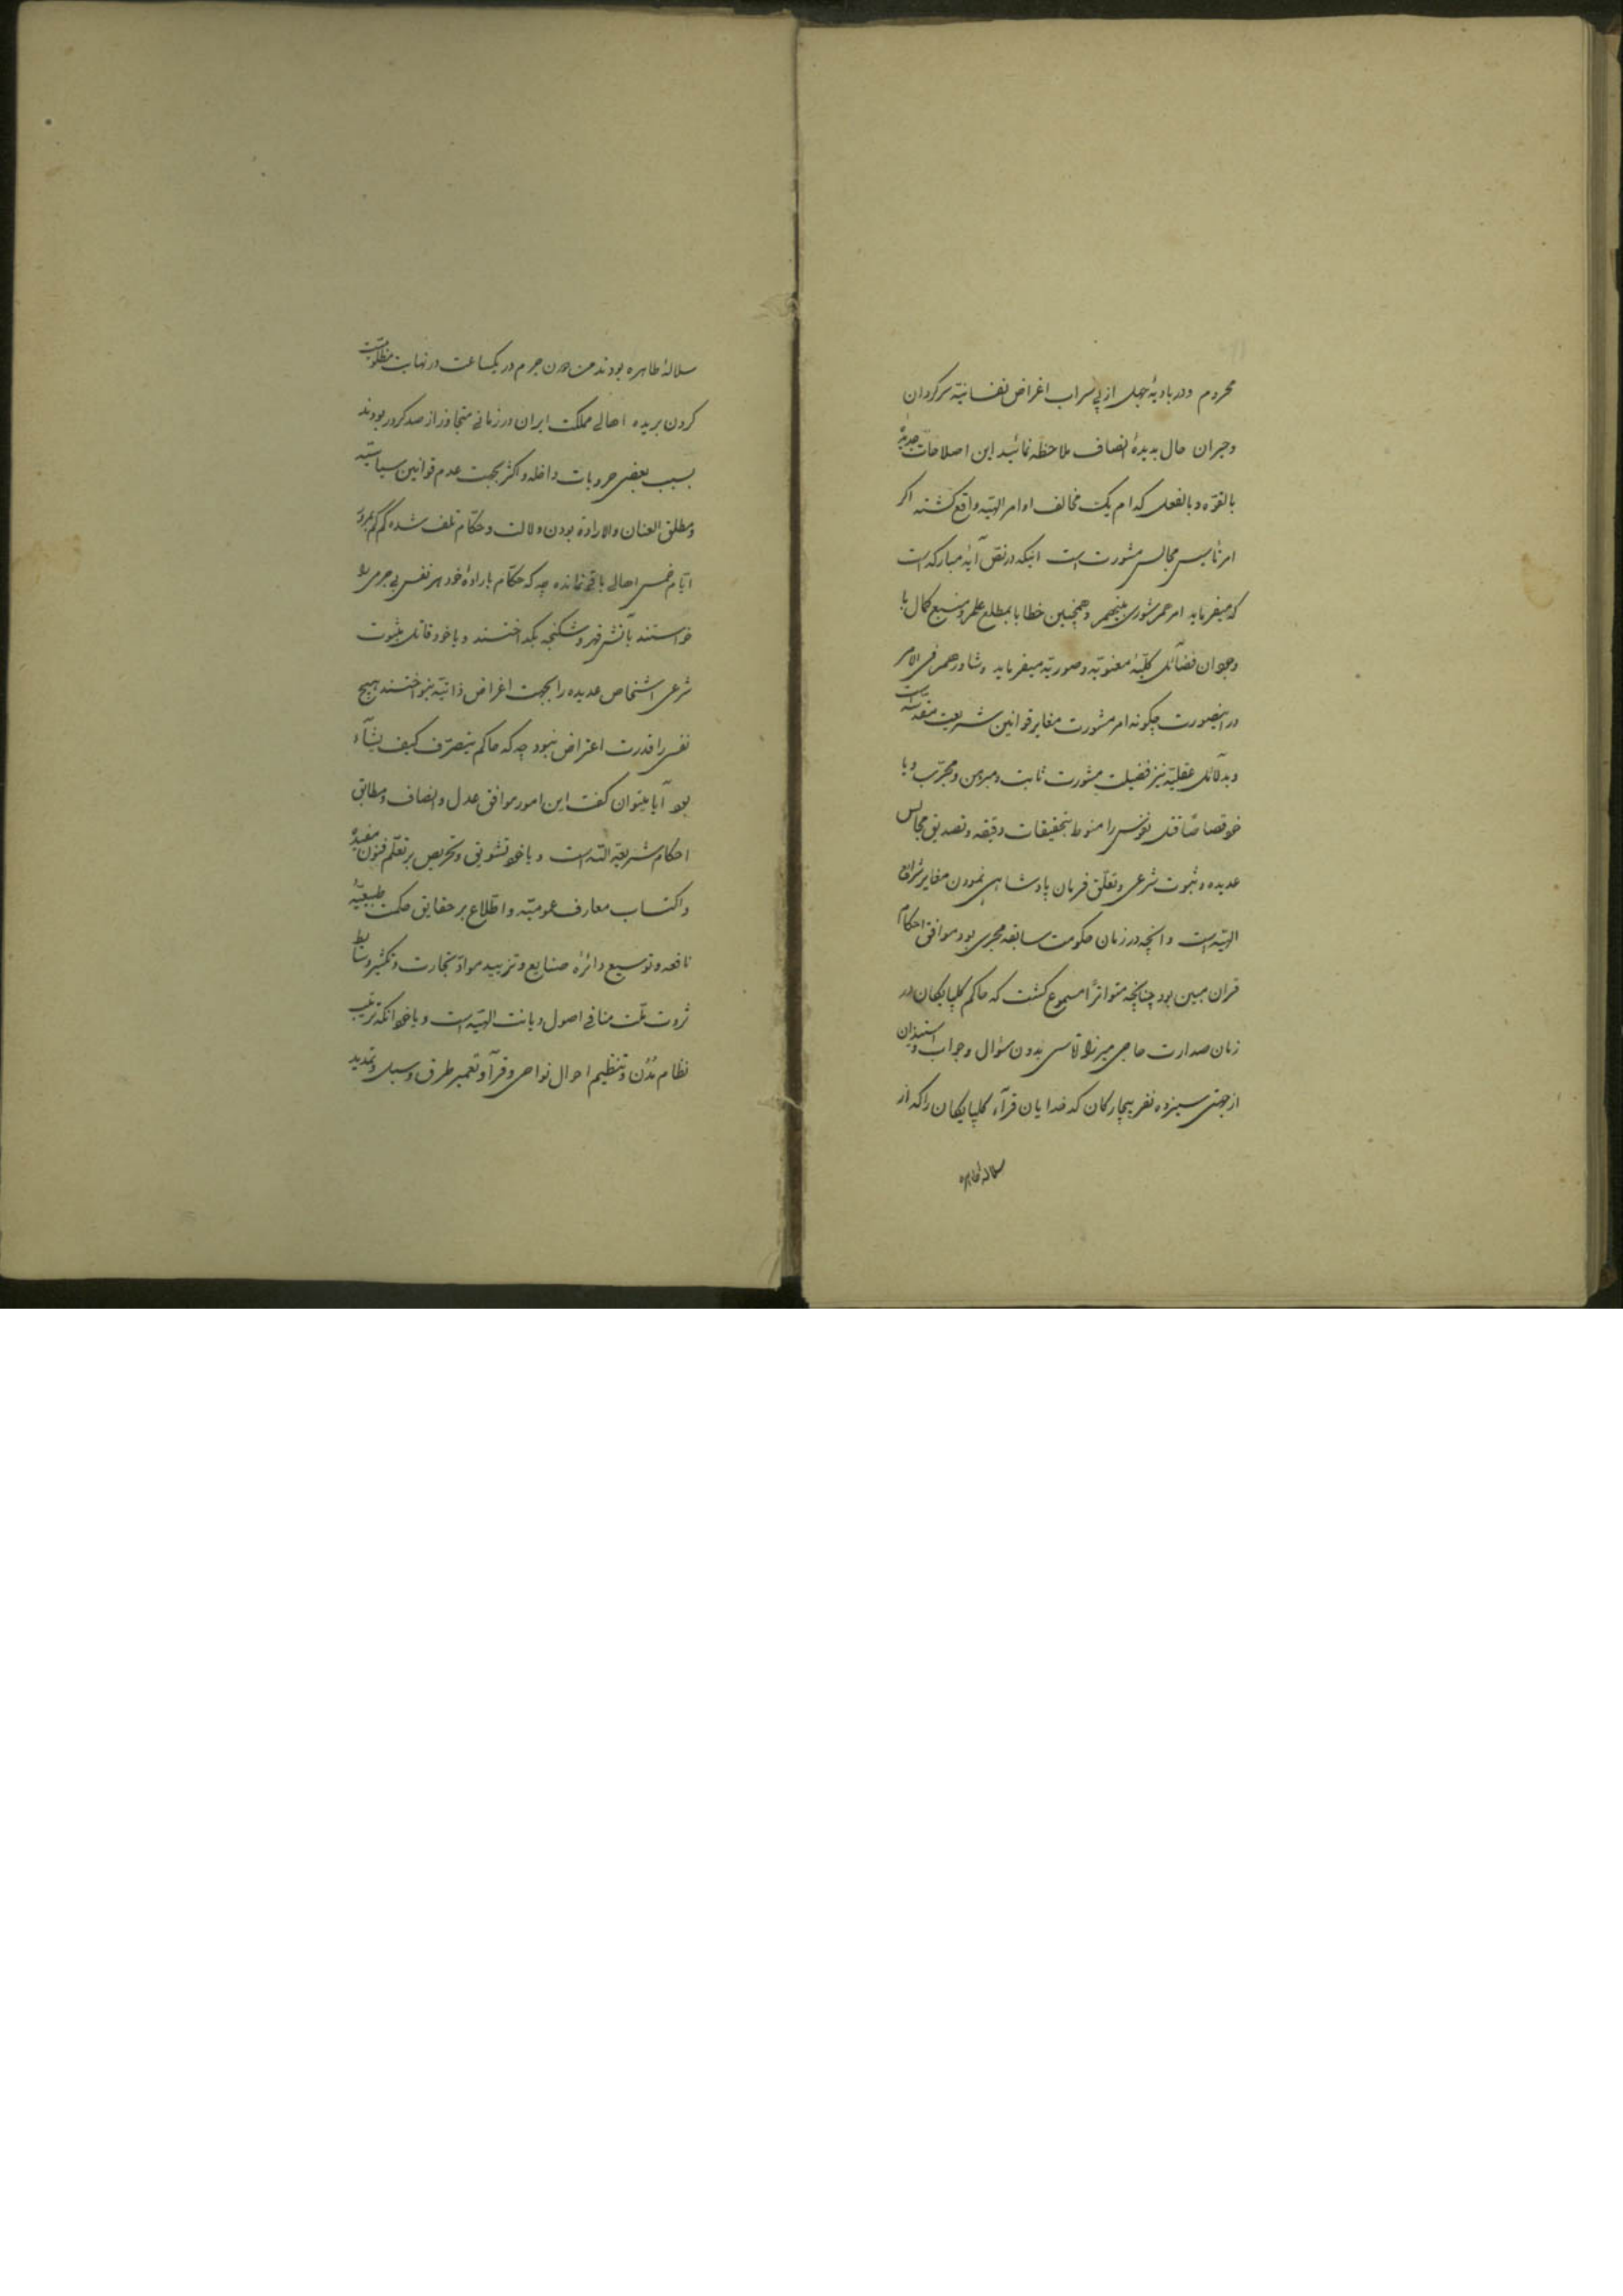 محروم و در بادیهٔ جهل از پی سراب اغراض نفسانیّه سرگردان
و حیران حال بدیدهٔ انصاف ملاحظه نمائید این اصلاحات جدیدهٔ
بالقوّه و بالفعل کدام یک مخالف اوامر الهیّه واقع گشته اگر
امر تأسیس مجالس مشورت است اینکه در نصّ آیهٔ مبارکه است
که میفرماید امرهم شوری بینهم و همچنین خطابا بمطلع علم و منبع کمال با
وجود آن فضآئل کلّیّهٔ معنویّه و صوریّه میفرماید و شاورهم فی الامر
در اینصورت چگونه امر مشورت مغایر قوانین شریعت مقدّسه است
و بدلآئل عقلیّه نیز فضیلت مشورت ثابت و مبرهن و مجرّب و یا
خود قصاصاً قتل نفوس را منوط بتحقیقات دقیقه و تصدیق مجالس
عدیده و ثبوت شرعی و تعلّق فرمان پادشاهی نمودن مغایر شرائع
الهیّه است و آنچه در زمان حکومت سابقه مجری بود موافق احکام
قران مبین بود چنانچه متواتراً مسموع گشت که حاکم گلپایگان در
زمان صدارت حاجی میرزا آقاسی بدون سؤال و جواب و استیذان
از جهتی سیزده نفر بیچارگان کدخدایان قرآء گلپایگان را که از
سلاله طاهره
سلالهٔ طاهره بودند من دون جرم در یکساعت در نهایت مظلومیّت
گردن بریده اهالی مملکت ایران در زمانی متجاوز از صد کرور بودند
بسبب بعضی حروبات داخله و اکثر بجهت عدم قوانین سیاسیّه
و مطلق العنان و الاراده بودن ولات و حکّام تلف شده کم کم بمرور
ایّام خمس اهالی باقی نمانده چه که حکّام بارادهٔ خود هر نفس بی جرمی را
خواستند بآتش قهر و شکنجه بگداختند و یا خود قاتل بثبوت
شرعی اشخاص عدیده را بجهت اغراض ذاتیّه بنواختند هیچ
نفس را قدرت اعتراض نبود چه که حاکم یتصرّف کیف یشآء
بود آیا میتوان گفت این امور موافق عدل و انصاف و مطابق
احکام شریعة اللّه است و یا خود تشویق و تحریص بر تعلّم فنون مفیدهٔ
و اکتساب معارف عمومیّه و اطّلاع بر حقایق حکمت طبیعیّهٔ
نافعه و توسیع دائرهٔ صنایع و تزیید موادّ تجارت و تکثیر وسایط
ثروت ملّت منافی اصول دیانت الهیّه است و یا خود آنکه ترتیب
نظام مُدُن و تنظیم احوال نواحی و قرآ و تعمیر طرق و سبل و تمدید